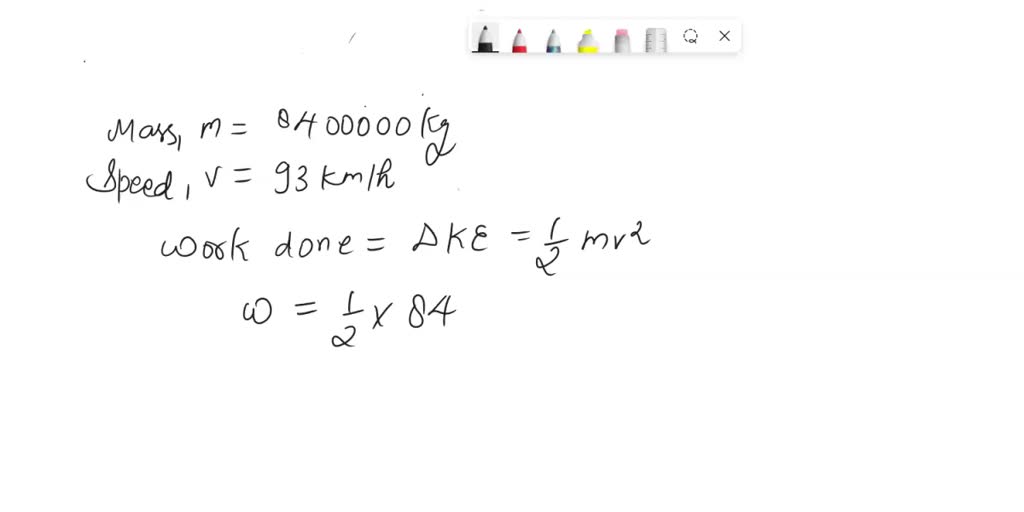 Mass, m = 8400000 kg
Speed, v = 93 km/h
work done = ΔKE = 1/2 mv²
W = 1/2 × 84